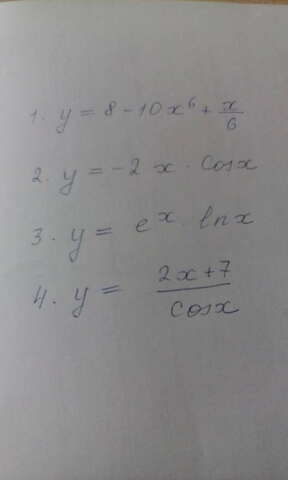 1. y = 8 - 10x⁶ + x/6
2. y = -2 x · cosx
3. y = eˣ · lnx
4. y = (2x+7)/cosx